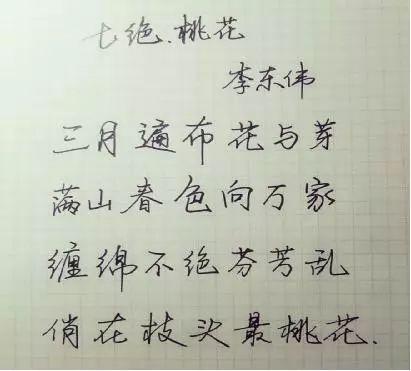 七绝.桃花
李东伟
三月遍布花与芽
满山春色向万家
缠绵不绝芬芳乱
俏在枝头最桃花.